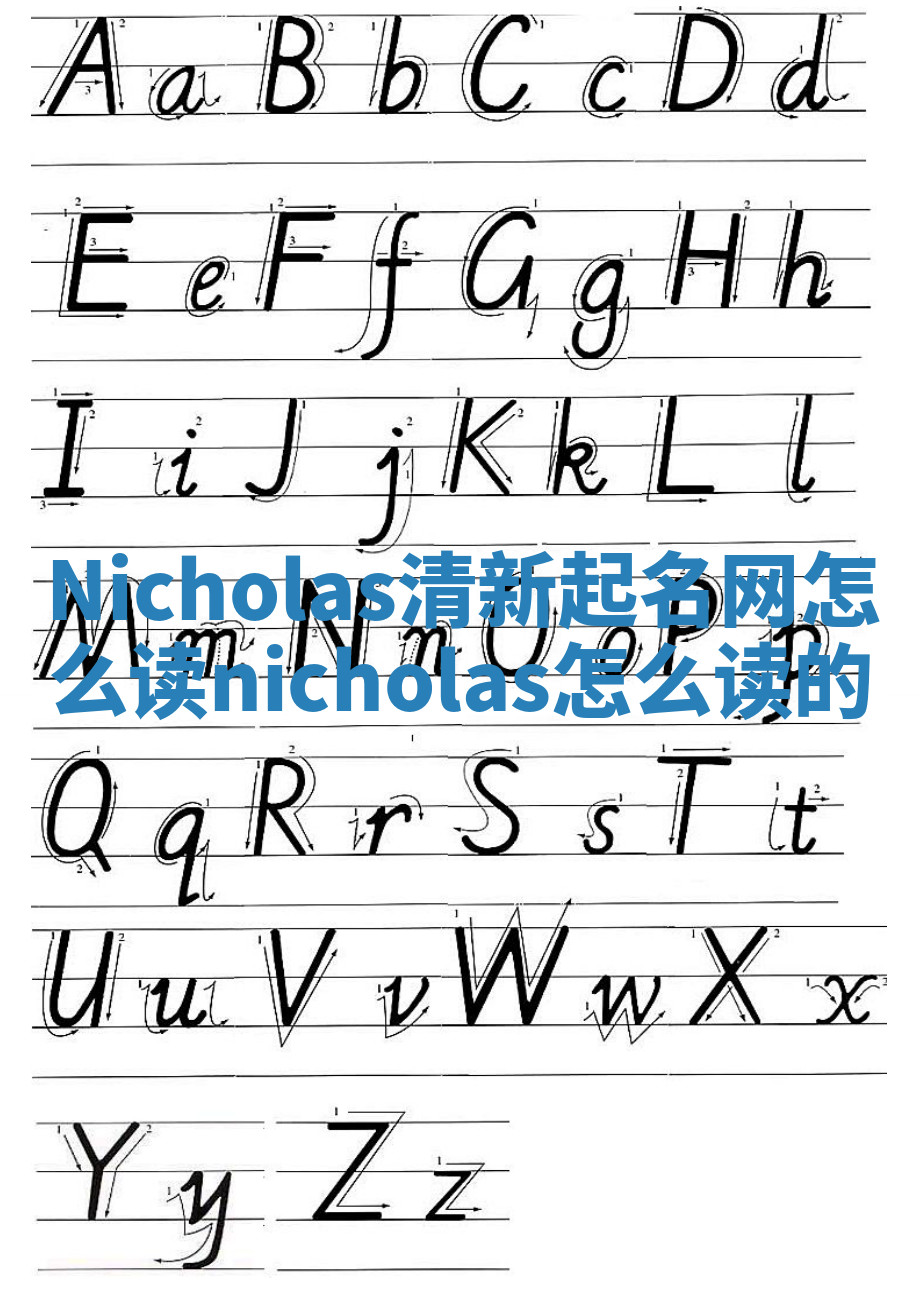 A a B b C c D d
E e F f G g H h
I i J j K k L l
Nicholas清新起名网怎
么读nicholas怎么读的
M m N n O o P p
Q q R r S s T t
U u V v W w X x
Y y Z z